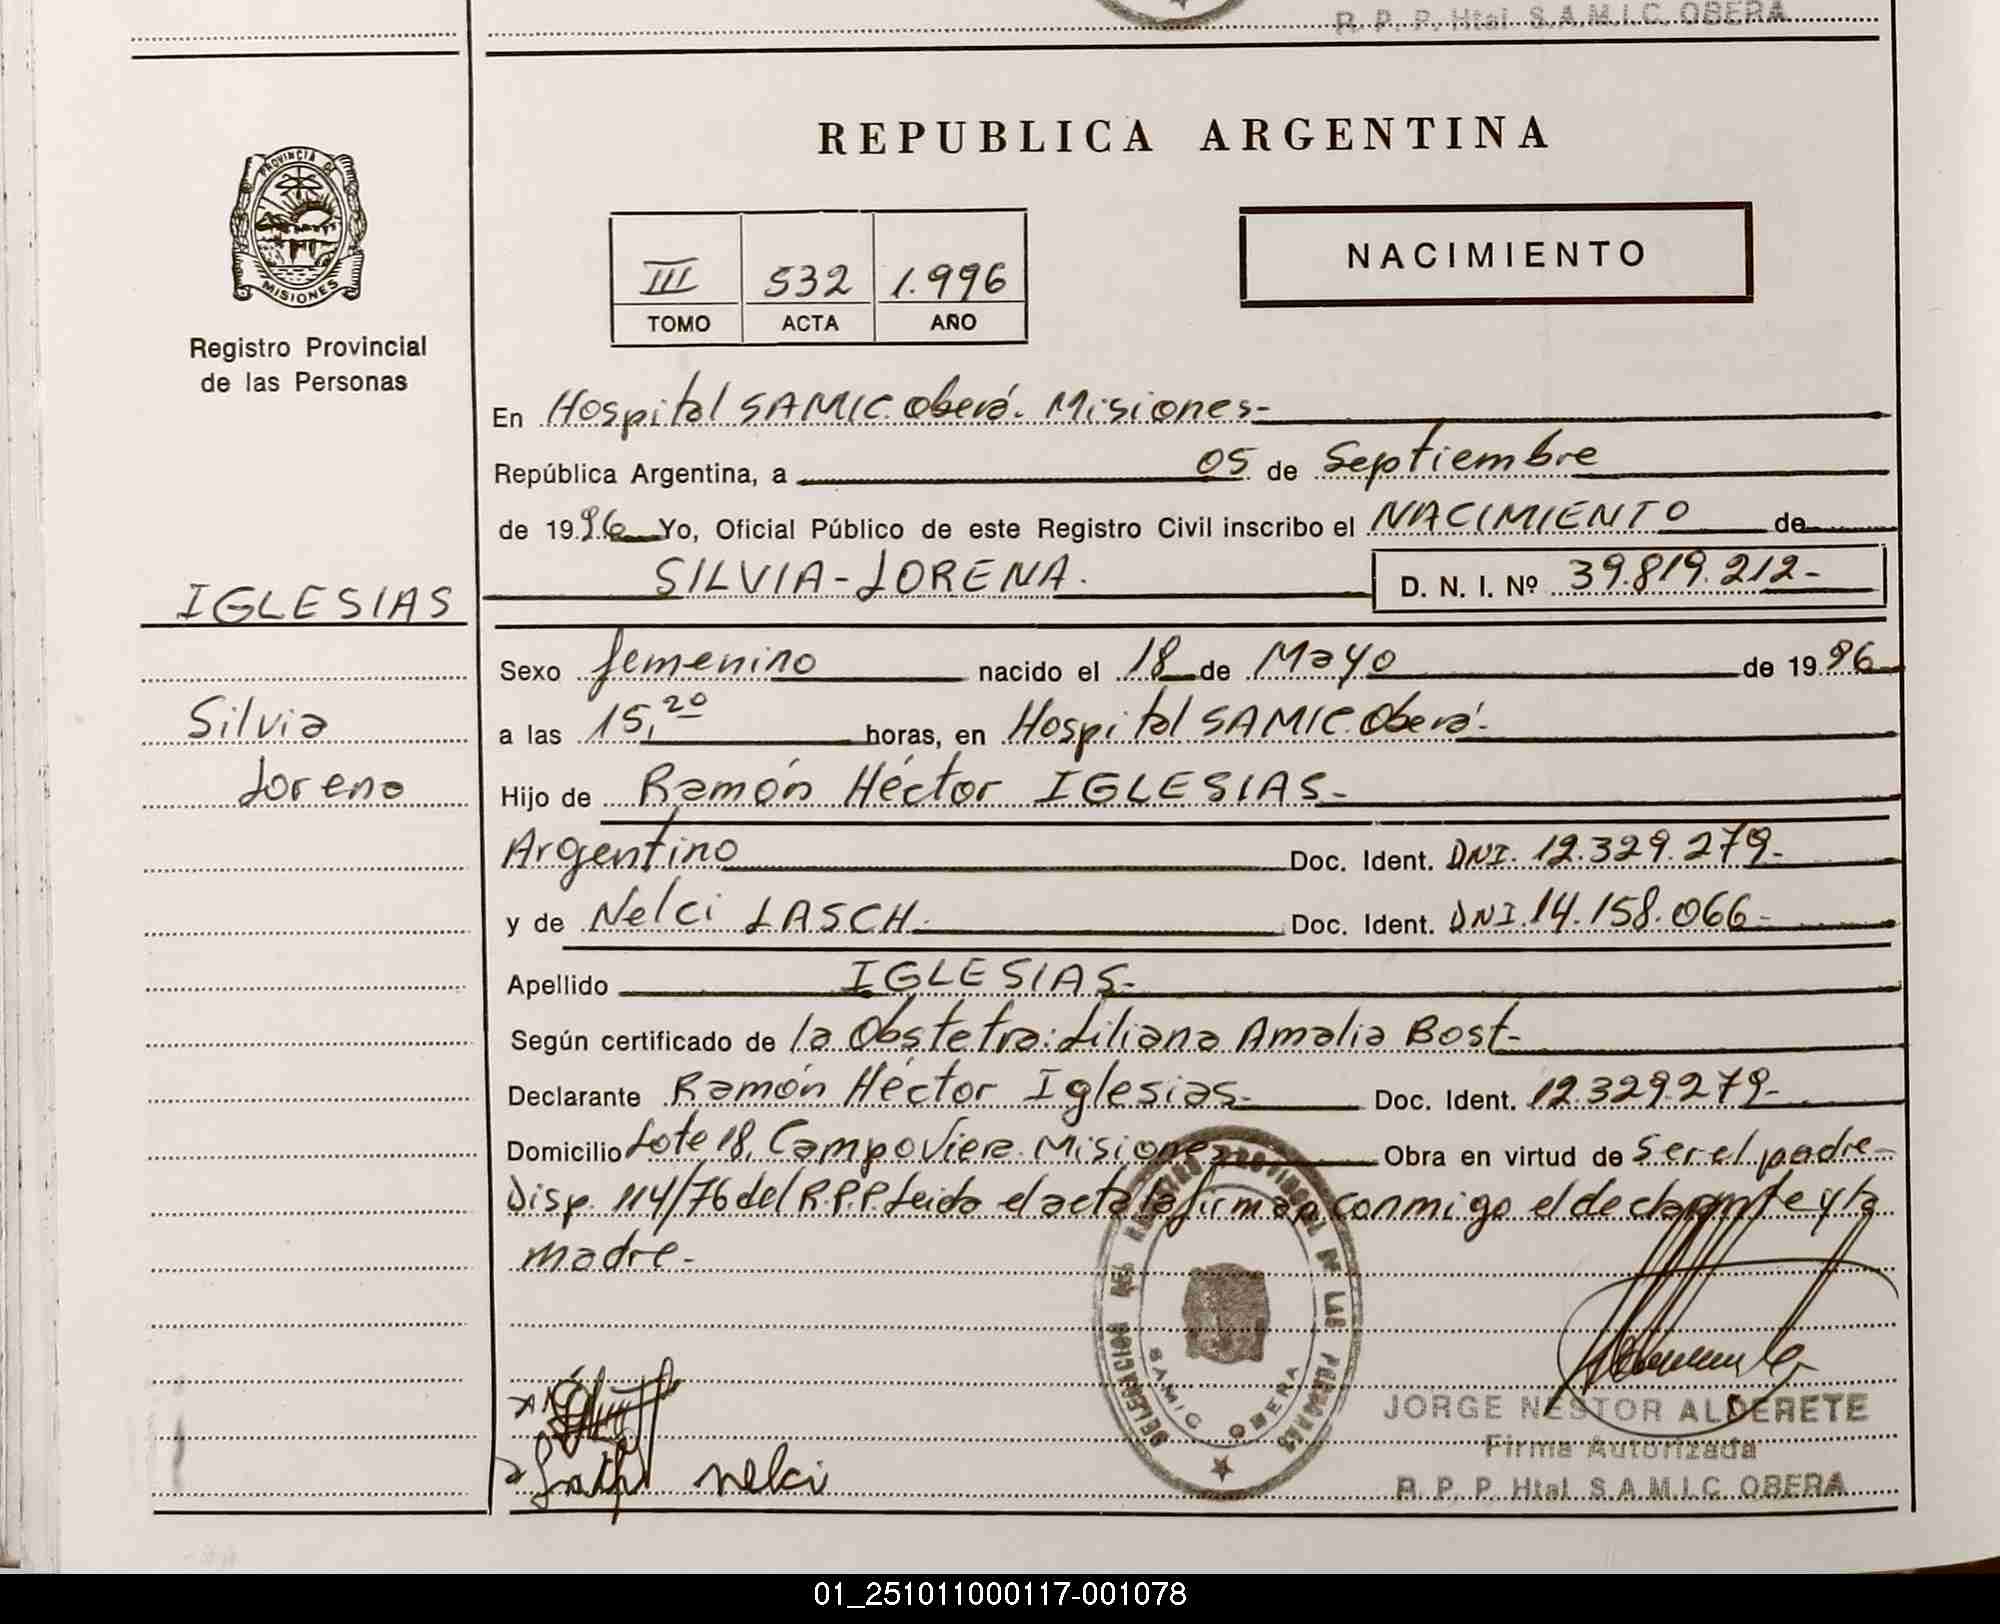 R. P. P. Htal. S.A.M.I.C. OBERA
REPUBLICA ARGENTINA
PROVINCIA DE
MISIONES
Registro Provincial
de las Personas
NACIMIENTO
III 532 1.996
TOMO ACTA AÑO
En Hospital SAMIC. Oberá. Misiones-
República Argentina, a 05 de Septiembre
de 1996 Yo, Oficial Público de este Registro Civil inscribo el NACIMIENTO de
IGLESIAS
SILVIA-LORENA. D. N. I. Nº 39.819.212-
Sexo femenino nacido el 18 de Mayo de 1996
Silvia
a las 15,20 horas, en Hospital SAMIC. Oberá-
Lorena
Hijo de Ramón Héctor IGLESIAS-
Argentino Doc. Ident. DNI. 12.329.279-
y de Nelci LASCH. Doc. Ident. DNI. 14.158.066-
Apellido IGLESIAS-
Según certificado de la Obstetra: Liliana Amalia Bost-
Declarante Ramón Héctor Iglesias- Doc. Ident. 12.329.279-
Domicilio Lote 18, Campo Viera. Misiones Obra en virtud de Ser el padre-
Disp. 114/76 del R.P.P. Leida el acta la firman conmigo el declarante y la
madre-
DELEGACION DEL REGISTRO PROVINCIAL DE LAS PERSONAS
SAMIC OBERA
JORGE NESTOR ALDERETE
Firma Autorizada
nelci
R. P. P. Htal. S.A.M.I.C. OBERA
01_251011000117-001078